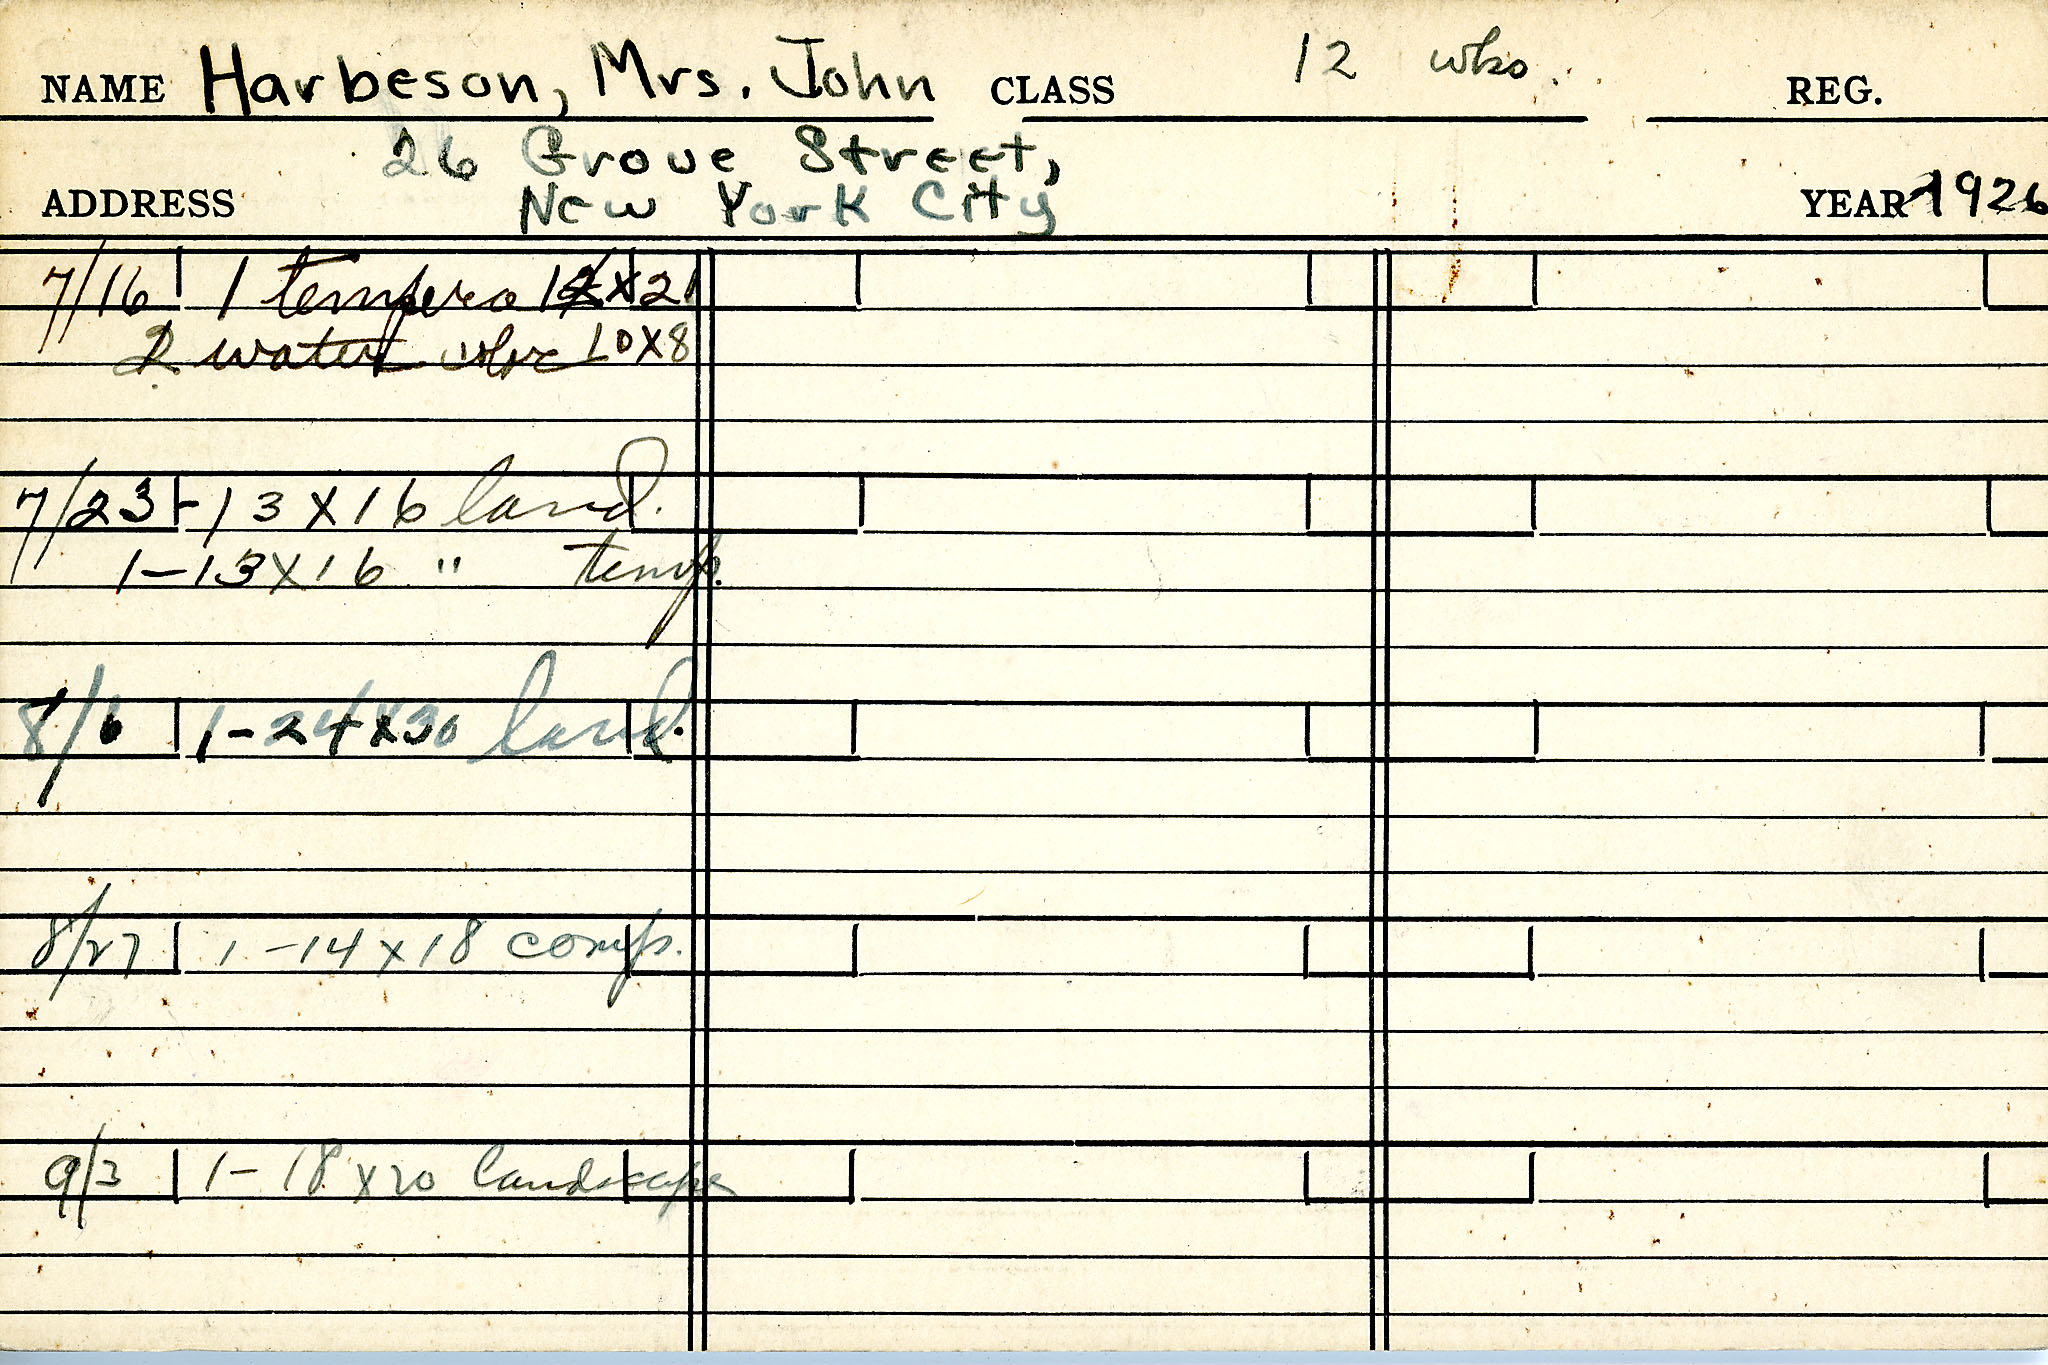 NAME Harbeson, Mrs. John CLASS 12 wks. REG.
26 Grove Street,
ADDRESS New York City YEAR 1926
7/16 1 tempera x 21
2 water color 10 x 8
7/23 1-13 x 16 land.
1-13 x 16 " temp.
8/6 1-24 x 30 land.
8/27 1-14 x 18 comp.
9/3 1-18 x 20 landscape